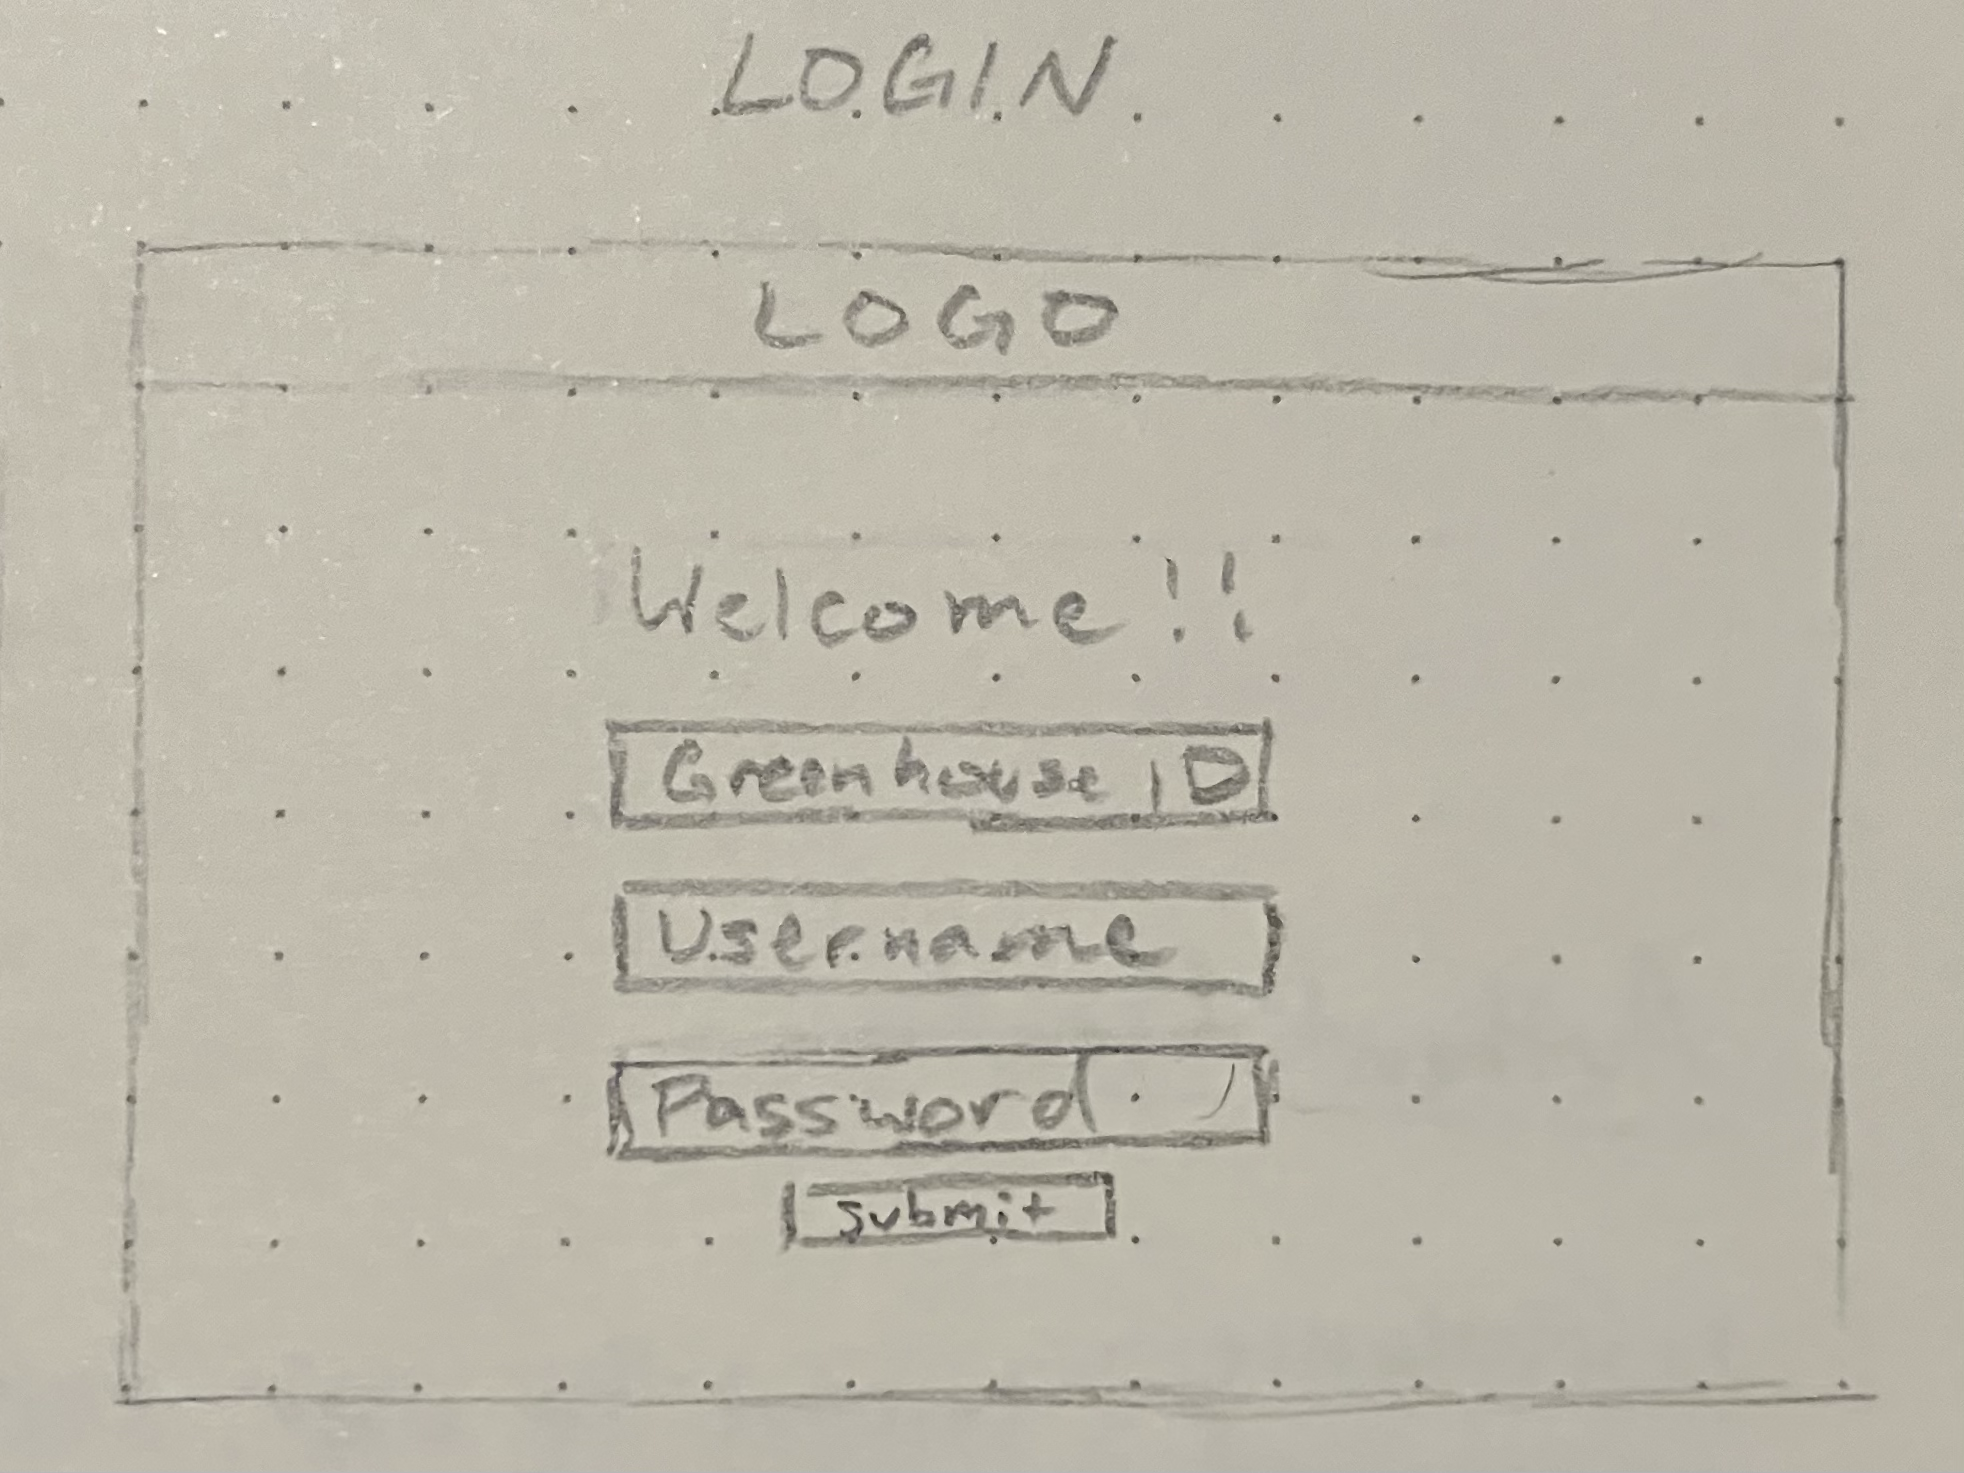 LOGIN
LOGO
Welcome!!
Greenhouse ID
Username
Password
submit